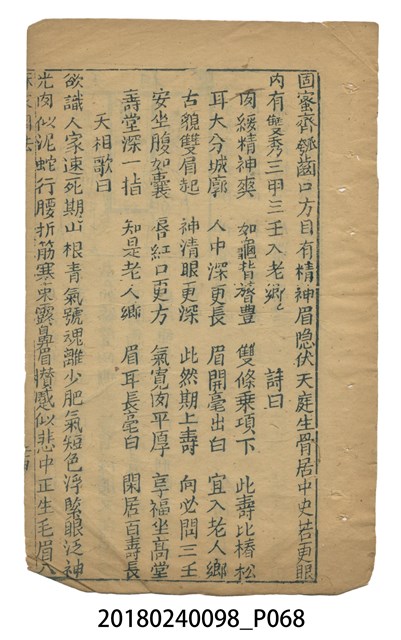 固蜜齊瓠齒口方目有精神眉隐伏天庭生骨居中史岩更眼
内有雙秀三甲三壬入老鄉〻 詩曰
肉緩精神爽 如龜背膂豊 雙條乗項下 此壽比椿松
耳大分城廓 人中深更長 眉開毫出白 宜入老人鄉
古貌雙眉起 神清眼更深 此然期上壽 向必問三壬
安坐腹如囊 唇紅口更方 氣寛肉平厚 享福坐高堂
壽堂深一指 知是老人鄉 眉耳長毫白 閑居百壽長
天相歌曰
欲識人家速死期山根青氣號魂離少肥氣短色浮緊眼泛神
光肉似泥蛇行腰折筋寒束露鼻眉攢蹙似悲中正生毛眉入
20180240098_P068